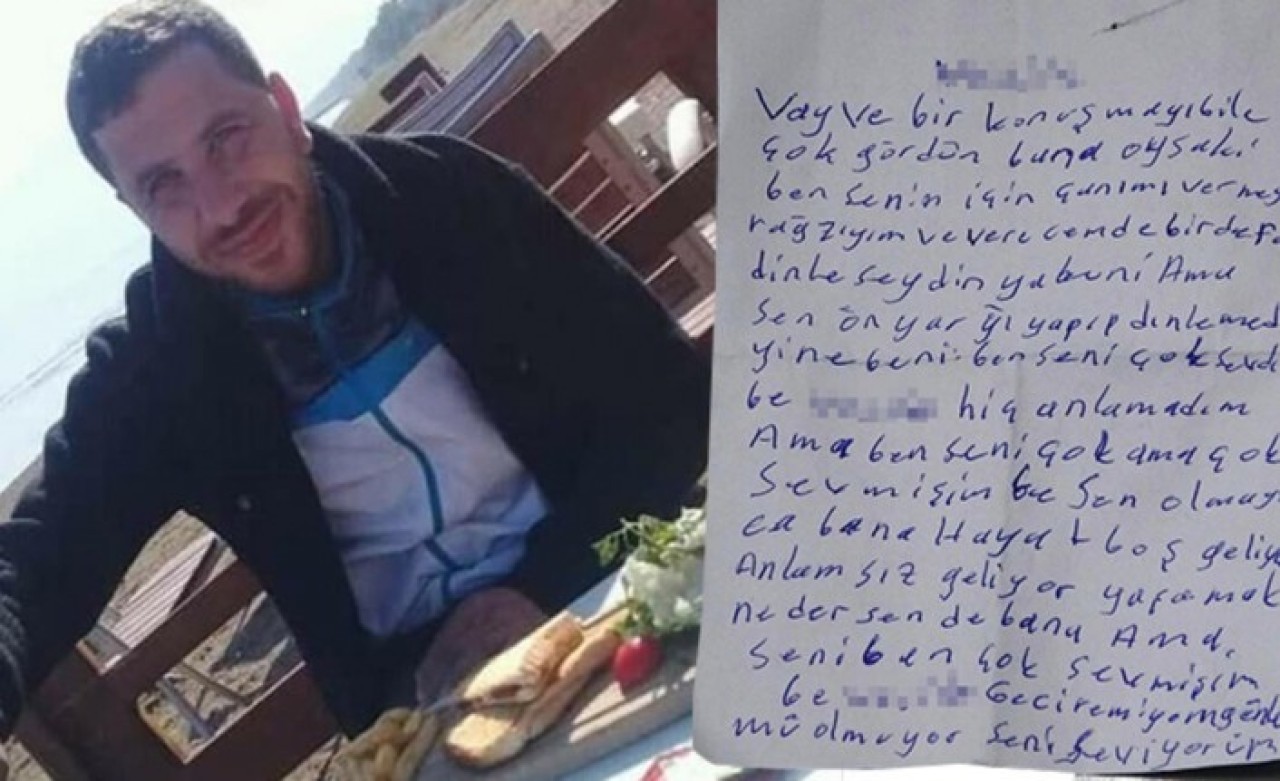 Vay ve bir konuşmayıbile
çok gördün bana oysaki
ben senin için çanımı vermeş
rağzıyım ve verecemde birdefa
dinleseydin ya beni Ama
Sen ön yarğı yapıp dinlemed
yine beni. ben seni çok sevdi
be hiç anlamadım
Ama ben seni çok ama çok
Sevmişim be Sen olmay
ca bana Hayat boş geliyo
Anlamsız geliyor yaşamak
ne dersen de bana Ama,
Seni ben çok sevmişim
be Geciremiyom
mü olmuyor Seni Seviyorum